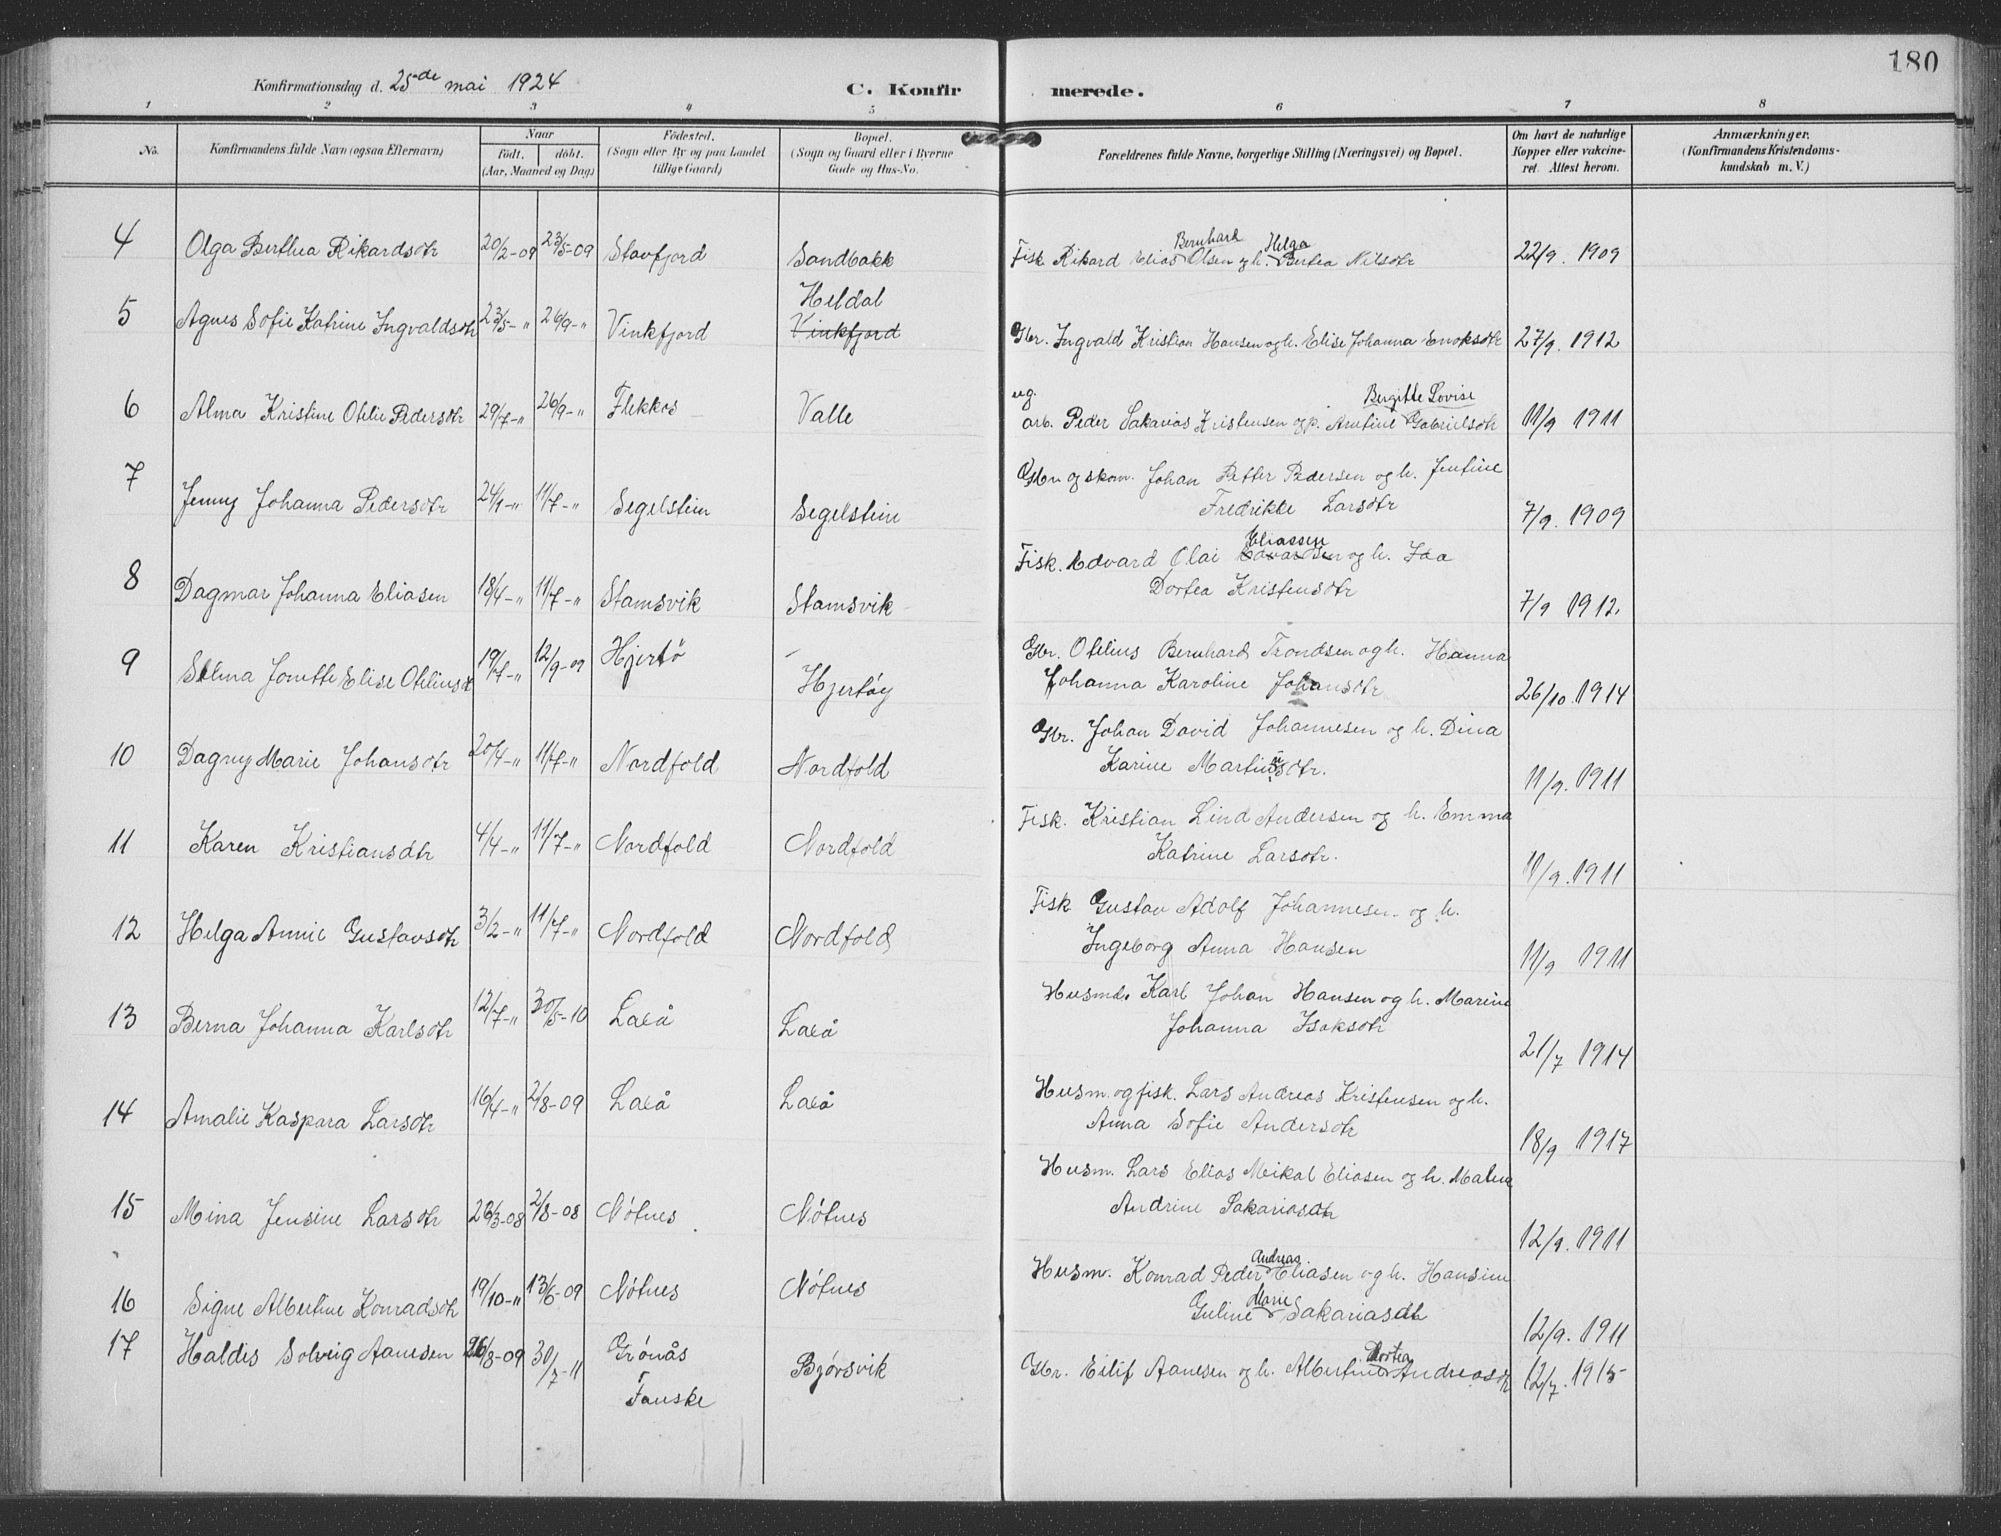 180
Konfirmationsdag d. 25de mai 1924 C. Konfirmerede.
1 2 3 4 5 6 7 8
No.
Konfirmandens fulde Navn (ogsaa Efternavn)
Naar
født. døbt.
(Aar, Maaned og Dag)
Födested.
(Sogn eller By og paa Landet
tillige Gaard)
Bopæl.
(Sogn og Gaard eller i Byerne
Gade og Hus-No.
Forældrenes fulde Navne, borgerlige Stilling (Næringsvei) og Bopæl.
Om havt de naturlige
Kopper eller vakcine-
ret. Attest herom.
Anmærkninger.
(Konfirmandens Kristendoms-
kundskab m. V.)
4 Olga Berthea Rikardsdtr 20/2-09 23/5-09 Stavfjord Sandbakk
Bernhard Helga
Fisk. Rikard Elias Olsen og h. Bertea Nilsdtr 22/9. 1909
5 Agnes Sofie Katrine Ingvaldsdtr 23/5-" 26/9-" Vinkfjord
Heldal
Vinkfjord
Gbr. Ingvald Kristian Hansen og h. Elise Johanna Enoksdtr 27/9. 1912
6 Alma Kristine Otelie Pedersdtr 29/7-" 26/9-" Flekkos Valle
ug. Birgitte Lovise
arb. Peder Sakarias Kristensen og p. Arntine Gabrielsdtr 11/9 1911
7 Jenny Johanna Pedersdtr 24/1-" 11/7-" Segelstein Segelstein
Gbr. og skom. Johan Petter Pedersen og h. Jentine
Fredrikke Larsdtr 7/9. 1909
8 Dagmar Johanna Eliasen 18/4-" 11/7-" Stamsvik Stamsvik
Eliassen
Fisk. Edvard Olai Edvardsen og h. Ida
Dortea Kristensdtr 7/9 1912.
9 Selma Jonette Elise Oteliusd 19/7-" 12/9-09 Hjertö Hjertøy
Gbr. Otelius Bernhard Trondsen og h. Hanna
Johanna Karoline Johansdtr 26/10. 1914
10 Dagny Marie Johansdtr 20/4-" 11/7-" Nordfold Nordfold
Gbr. Johan David Johannesen og h. Dina
Karine Martinusdtr. 11/9. 1911
11 Karen Kristiansdtr 4/4-" 11/7-" Nordfold Nordfold
Fisk. Kristian Lind Andersen og h. Emma
Katrine Larsdtr. 11/9. 1911
12 Helga Annie Gustavsdtr 3/2-" 11/7-" Nordfold Nordfold
Fisk Gustav Adolf Johannesen og h.
Ingeborg Anna Hansen 11/9 1911
13 Berna Johanna Karlsdtr 12/7-" 30/5-10 Laxå Laxå
Husmd. Karl Johan Hansen og h. Marine
Johanna Isaksdtr 21/7 1914
14 Amalie Kaspara Larsdtr 16/4-" 2/8-09 Laxå Laxå
Husm. og fisk. Lars Andreas Kristensen og h.
Anna Sofie Andersdtr 18/9 1917
15 Mina Jensine Larsdtr 26/3-08 2/8-08 Nótnes Nótnes
Husm. Lars Elias Mikal Eliasen og h. Malene
Andrine Sakariasdtr 12/9. 1911
16 Signe Albertine Konradsdtr 19/10-" 13/6-09 Nótnes Nótnes
Andreas
Husm. Konrad Peder Eliasen og h. Hansine
Marie
Guline Sakariasdtr 12/9. 1911
17 Haldis Solveig Aanesen 26/8-09 30/7-11 Grónås
Fauske
Bjórsvik
Dortea
Gbr. Eilif Aanesen og h. Albertine Andreasdtr 12/7. 1915